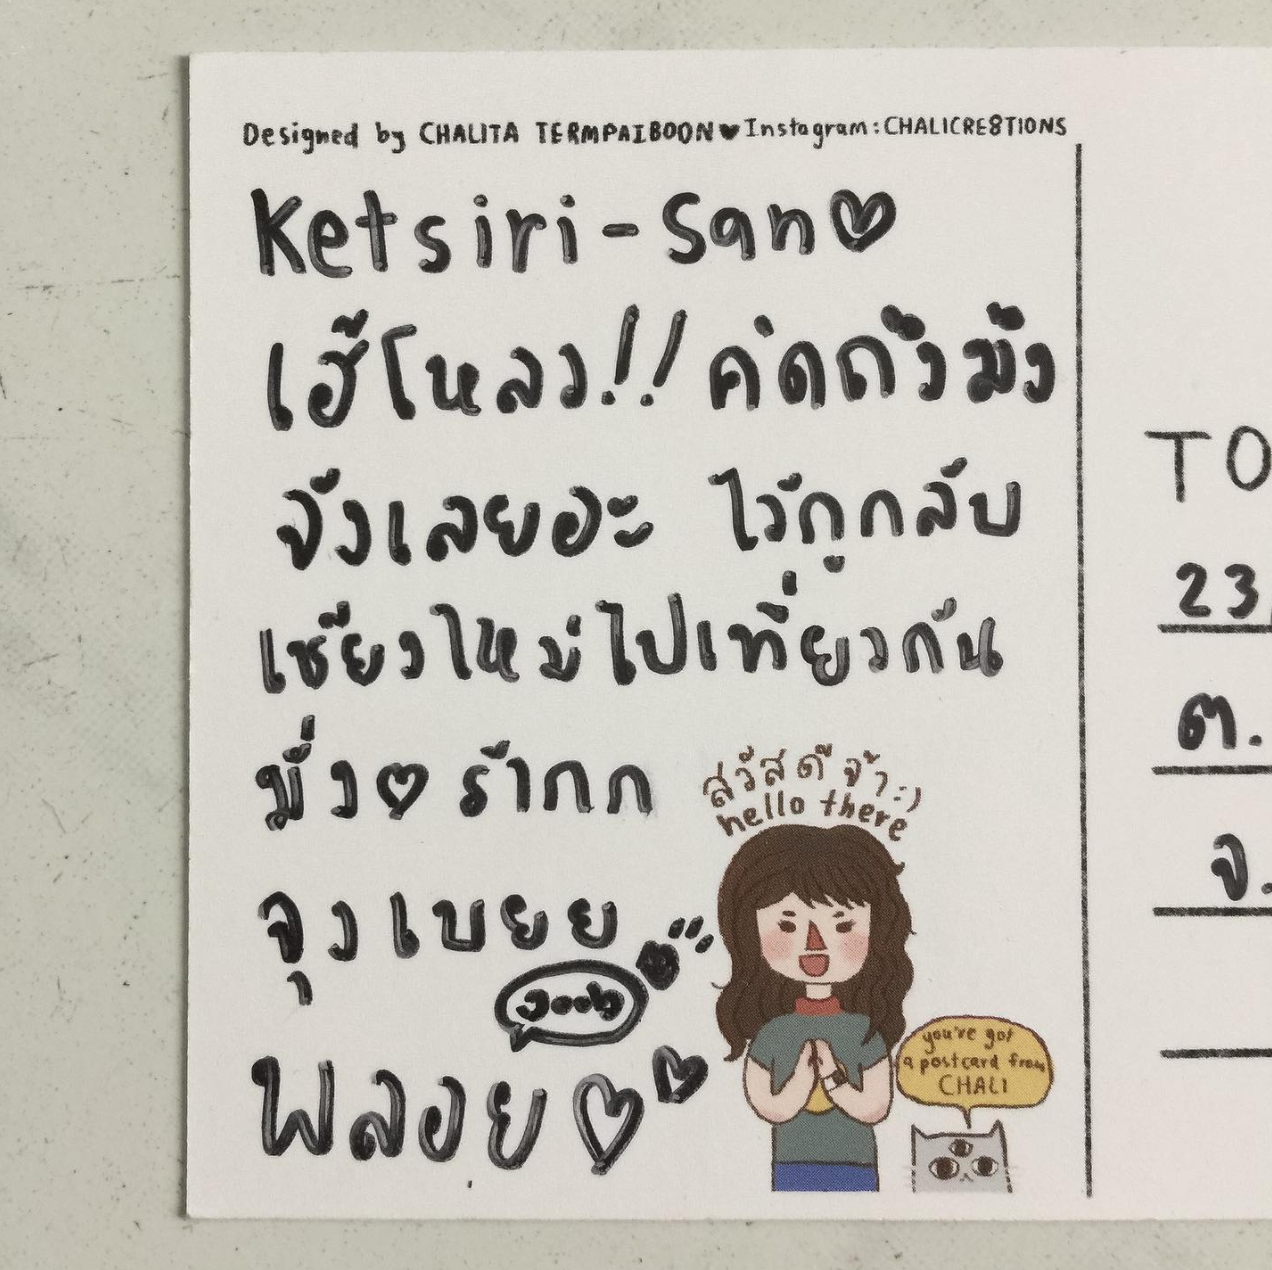 Designed by CHALITA TERMPAIBOON♥Instagram:CHALICRE8TIONS
Ketsiri-San♡
เฮ้โหลว!! คิดถึงมึง
จังเลยอะ ไว้กูกลับ
เชียงใหม่ไปเที่ยวกัน
มึ่ง♡ ร้ากกก
จุงเบยย
พลอย♡♡
สวัสดีจ้า:)
hello there
you've got
a postcard from
CHALI
TO
23
ต.
จ.